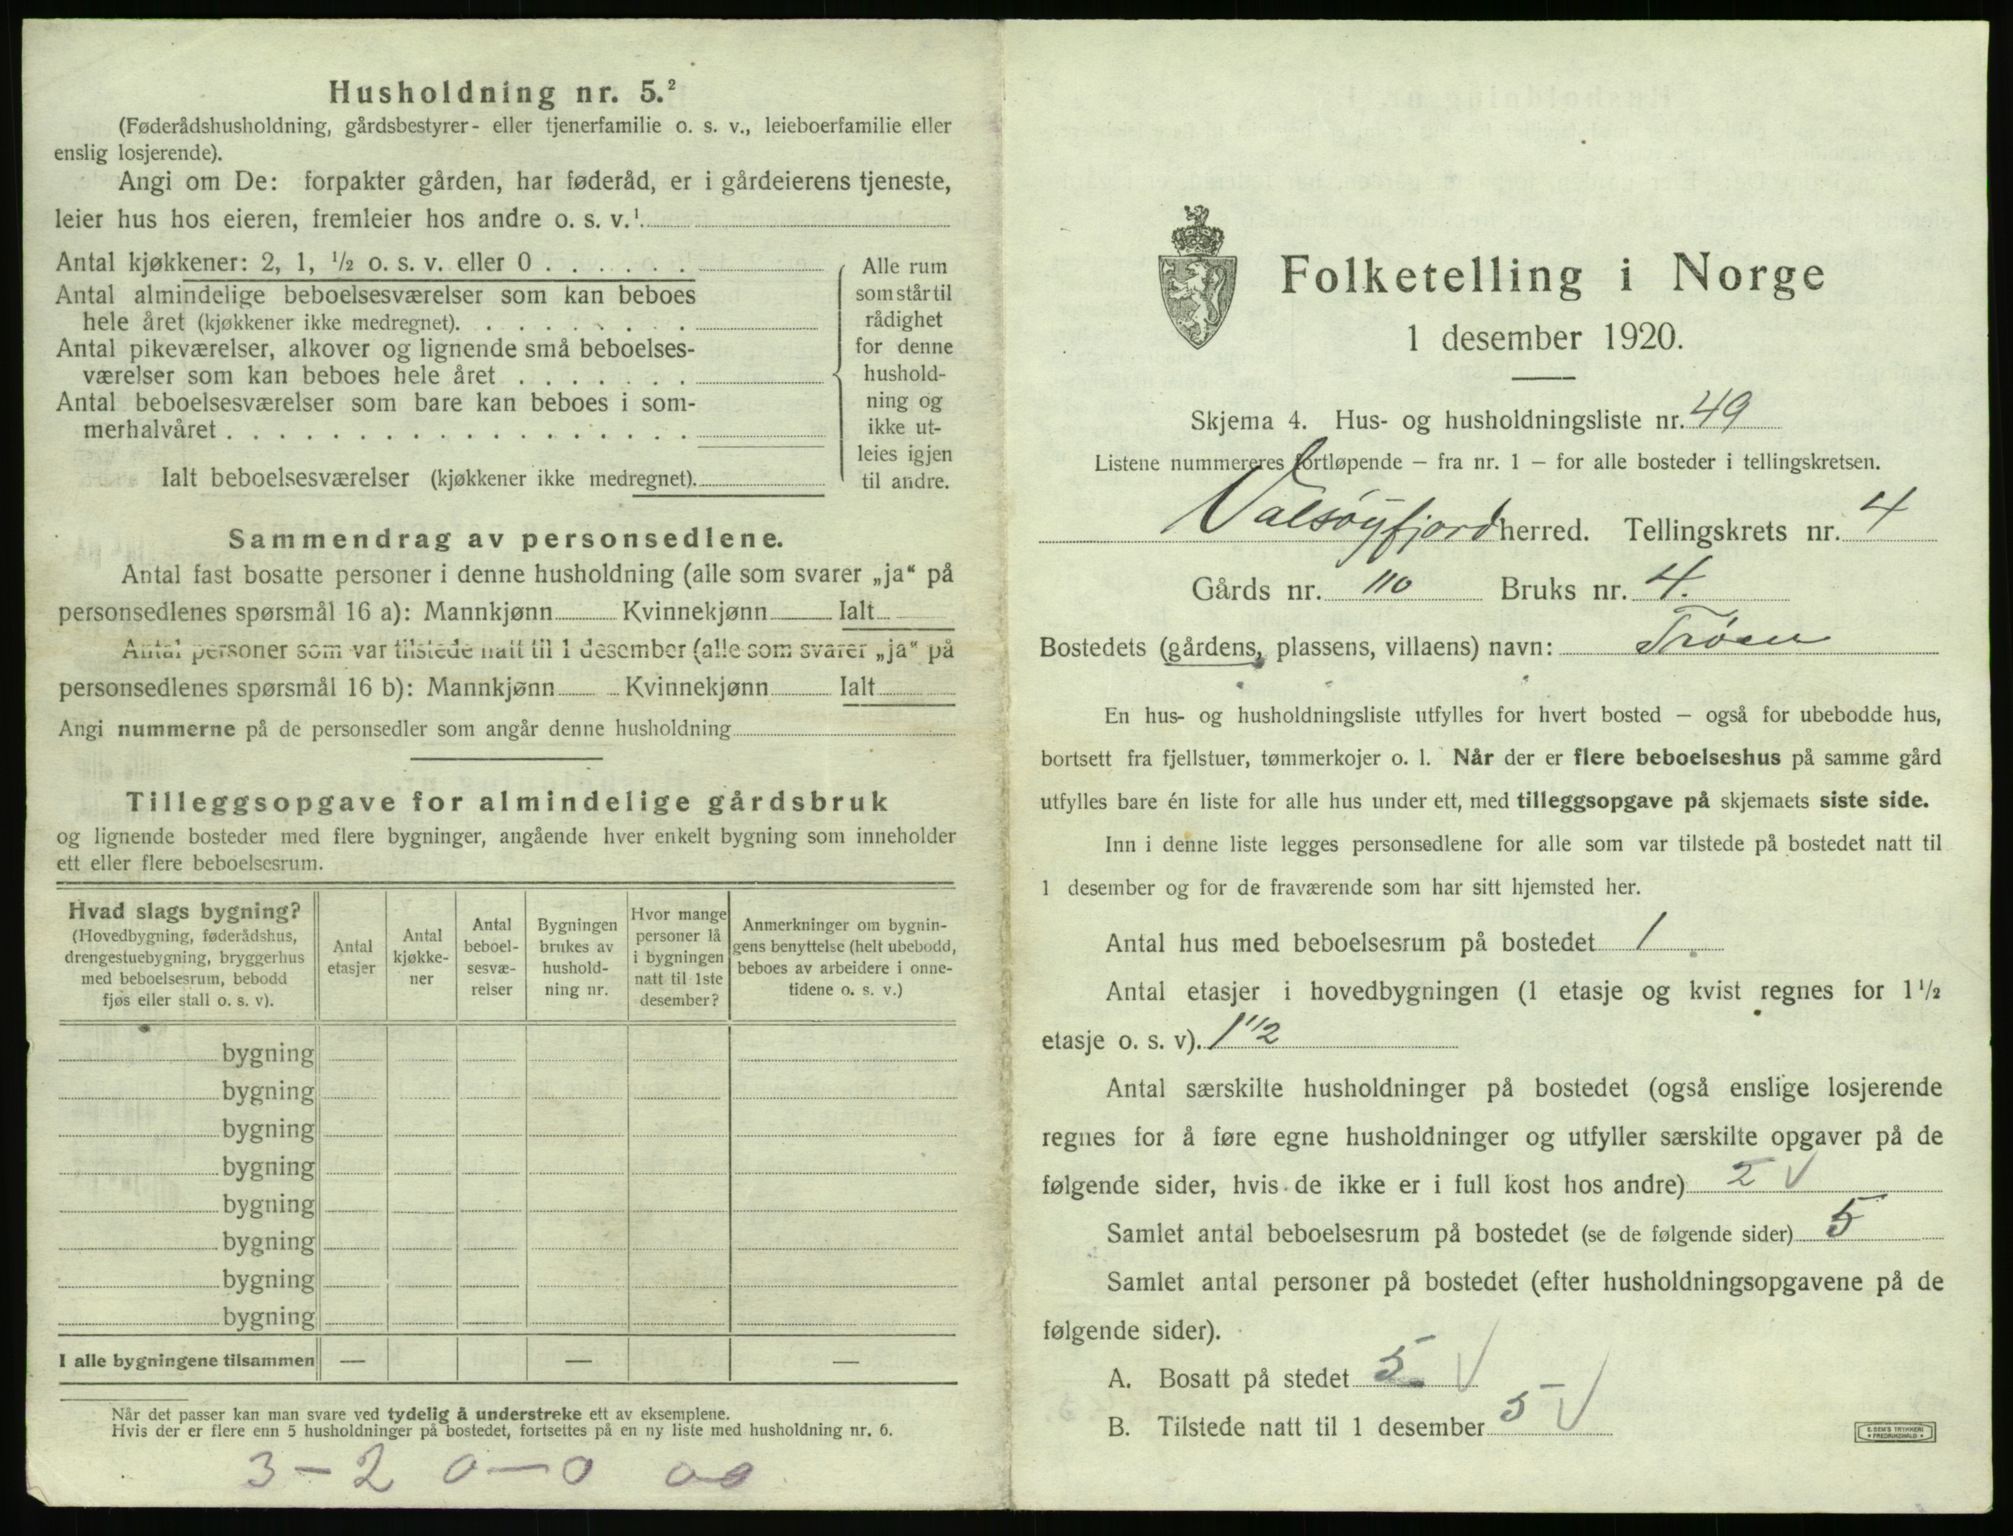 Husholdning nr. 5.²
(Føderådshusholdning, gårdsbestyrer- eller tjenerfamilie o. s. v., leieboerfamilie eller
enslig losjerende).
Angi om De: forpakter gården, har føderåd, er i gårdeierens tjeneste,
leier hus hos eieren, fremleier hos andre o. s. v.¹
Antal kjøkkener: 2, 1, ½ o. s. v. eller 0
Antal almindelige beboelsesværelser som kan beboes
hele året (kjøkkener ikke medregnet).
Antal pikeværelser, alkover og lignende små beboelses-
værelser som kan beboes hele året
Antal beboelsesværelser som bare kan beboes i som-
merhalvåret
Ialt beboelsesværelser (kjøkkener ikke medregnet).
Alle rum
som står til
rådighet
for denne
hushold-
ning og
ikke ut-
leies igjen
til andre.
Sammendrag av personsedlene.
Antal fast bosatte personer i denne husholdning (alle som svarer „ja“ på
personsedlenes spørsmål 16 a): Mannkjønn Kvinnekjønn Ialt
Antal personer som var tilstede natt til 1 desember (alle som svarer „ja“ på
personsedlenes spørsmål 16 b): Mannkjønn Kvinnekjønn Ialt
Angi nummerne på de personsedler som angår denne husholdning
Tilleggsopgave for almindelige gårdsbruk
og lignende bosteder med flere bygninger, angående hver enkelt bygning som inneholder
ett eller flere beboelsesrum.
Hvad slags bygning?
(Hovedbygning, føderådshus,
drengestuebygning, bryggerhus
med beboelsesrum, bebodd
fjøs eller stall o. s. v).
Antal
etasjer
Antal
kjøkke-
ner
Antal
beboel-
sesvæ-
relser
Bygningen
brukes av
hushold-
ning nr.
Hvor mange
personer lå
i bygningen
natt til 1ste
desember?
Anmerkninger om bygnin-
gens benyttelse (helt ubebodd,
beboes av arbeidere i onne-
tidene o. s. v.)
bygning
bygning
bygning
bygning
bygning
bygning
bygning
bygning
I alle bygningene tilsammen — — —
Når det passer kan man svare ved tydelig å understreke ett av eksemplene.
Hvis der er flere enn 5 husholdninger på bostedet, fortsettes på en ny liste med husholdning nr. 6.
3 – 2 0 – 0 00
Folketelling i Norge
1 desember 1920.
Skjema 4. Hus- og husholdningsliste nr. 49
Listene nummereres fortløpende – fra nr. 1 – for alle bosteder i tellingskretsen.
Valsøyfjord herred. Tellingskrets nr. 4
Gårds nr. 110 Bruks nr. 4.
Bostedets (gårdens, plassens, villaens) navn: Trøen
En hus- og husholdningsliste utfylles for hvert bosted – også for ubebodde hus,
bortsett fra fjellstuer, tømmerkojer o. l. Når der er flere beboelseshus på samme gård
utfylles bare én liste for alle hus under ett, med tilleggsopgave på skjemaets siste side.
Inn i denne liste legges personsedlene for alle som var tilstede på bostedet natt til
1 desember og for de fraværende som har sitt hjemsted her.
Antal hus med beboelsesrum på bostedet 1
Antal etasjer i hovedbygningen (1 etasje og kvist regnes for 1½
etasje o. s. v). 1 1/2
Antal særskilte husholdninger på bostedet (også enslige losjerende
regnes for å føre egne husholdninger og utfyller særskilte opgaver på de
følgende sider, hvis de ikke er i full kost hos andre) 2 V
Samlet antal beboelsesrum på bostedet (se de følgende sider) 5
Samlet antal personer på bostedet (efter husholdningsopgavene på de
følgende sider).
A. Bosatt på stedet 5 V
B. Tilstede natt til 1 desember 5 V
E. SEM'S TRYKKERI
FREDRIKSHALD